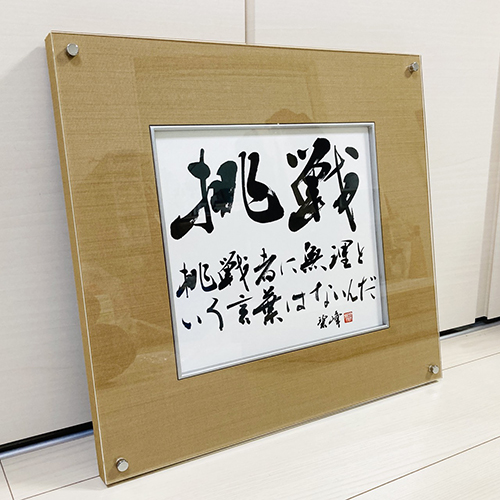 挑戦
挑戦者に無理と
いう言葉はないんだ